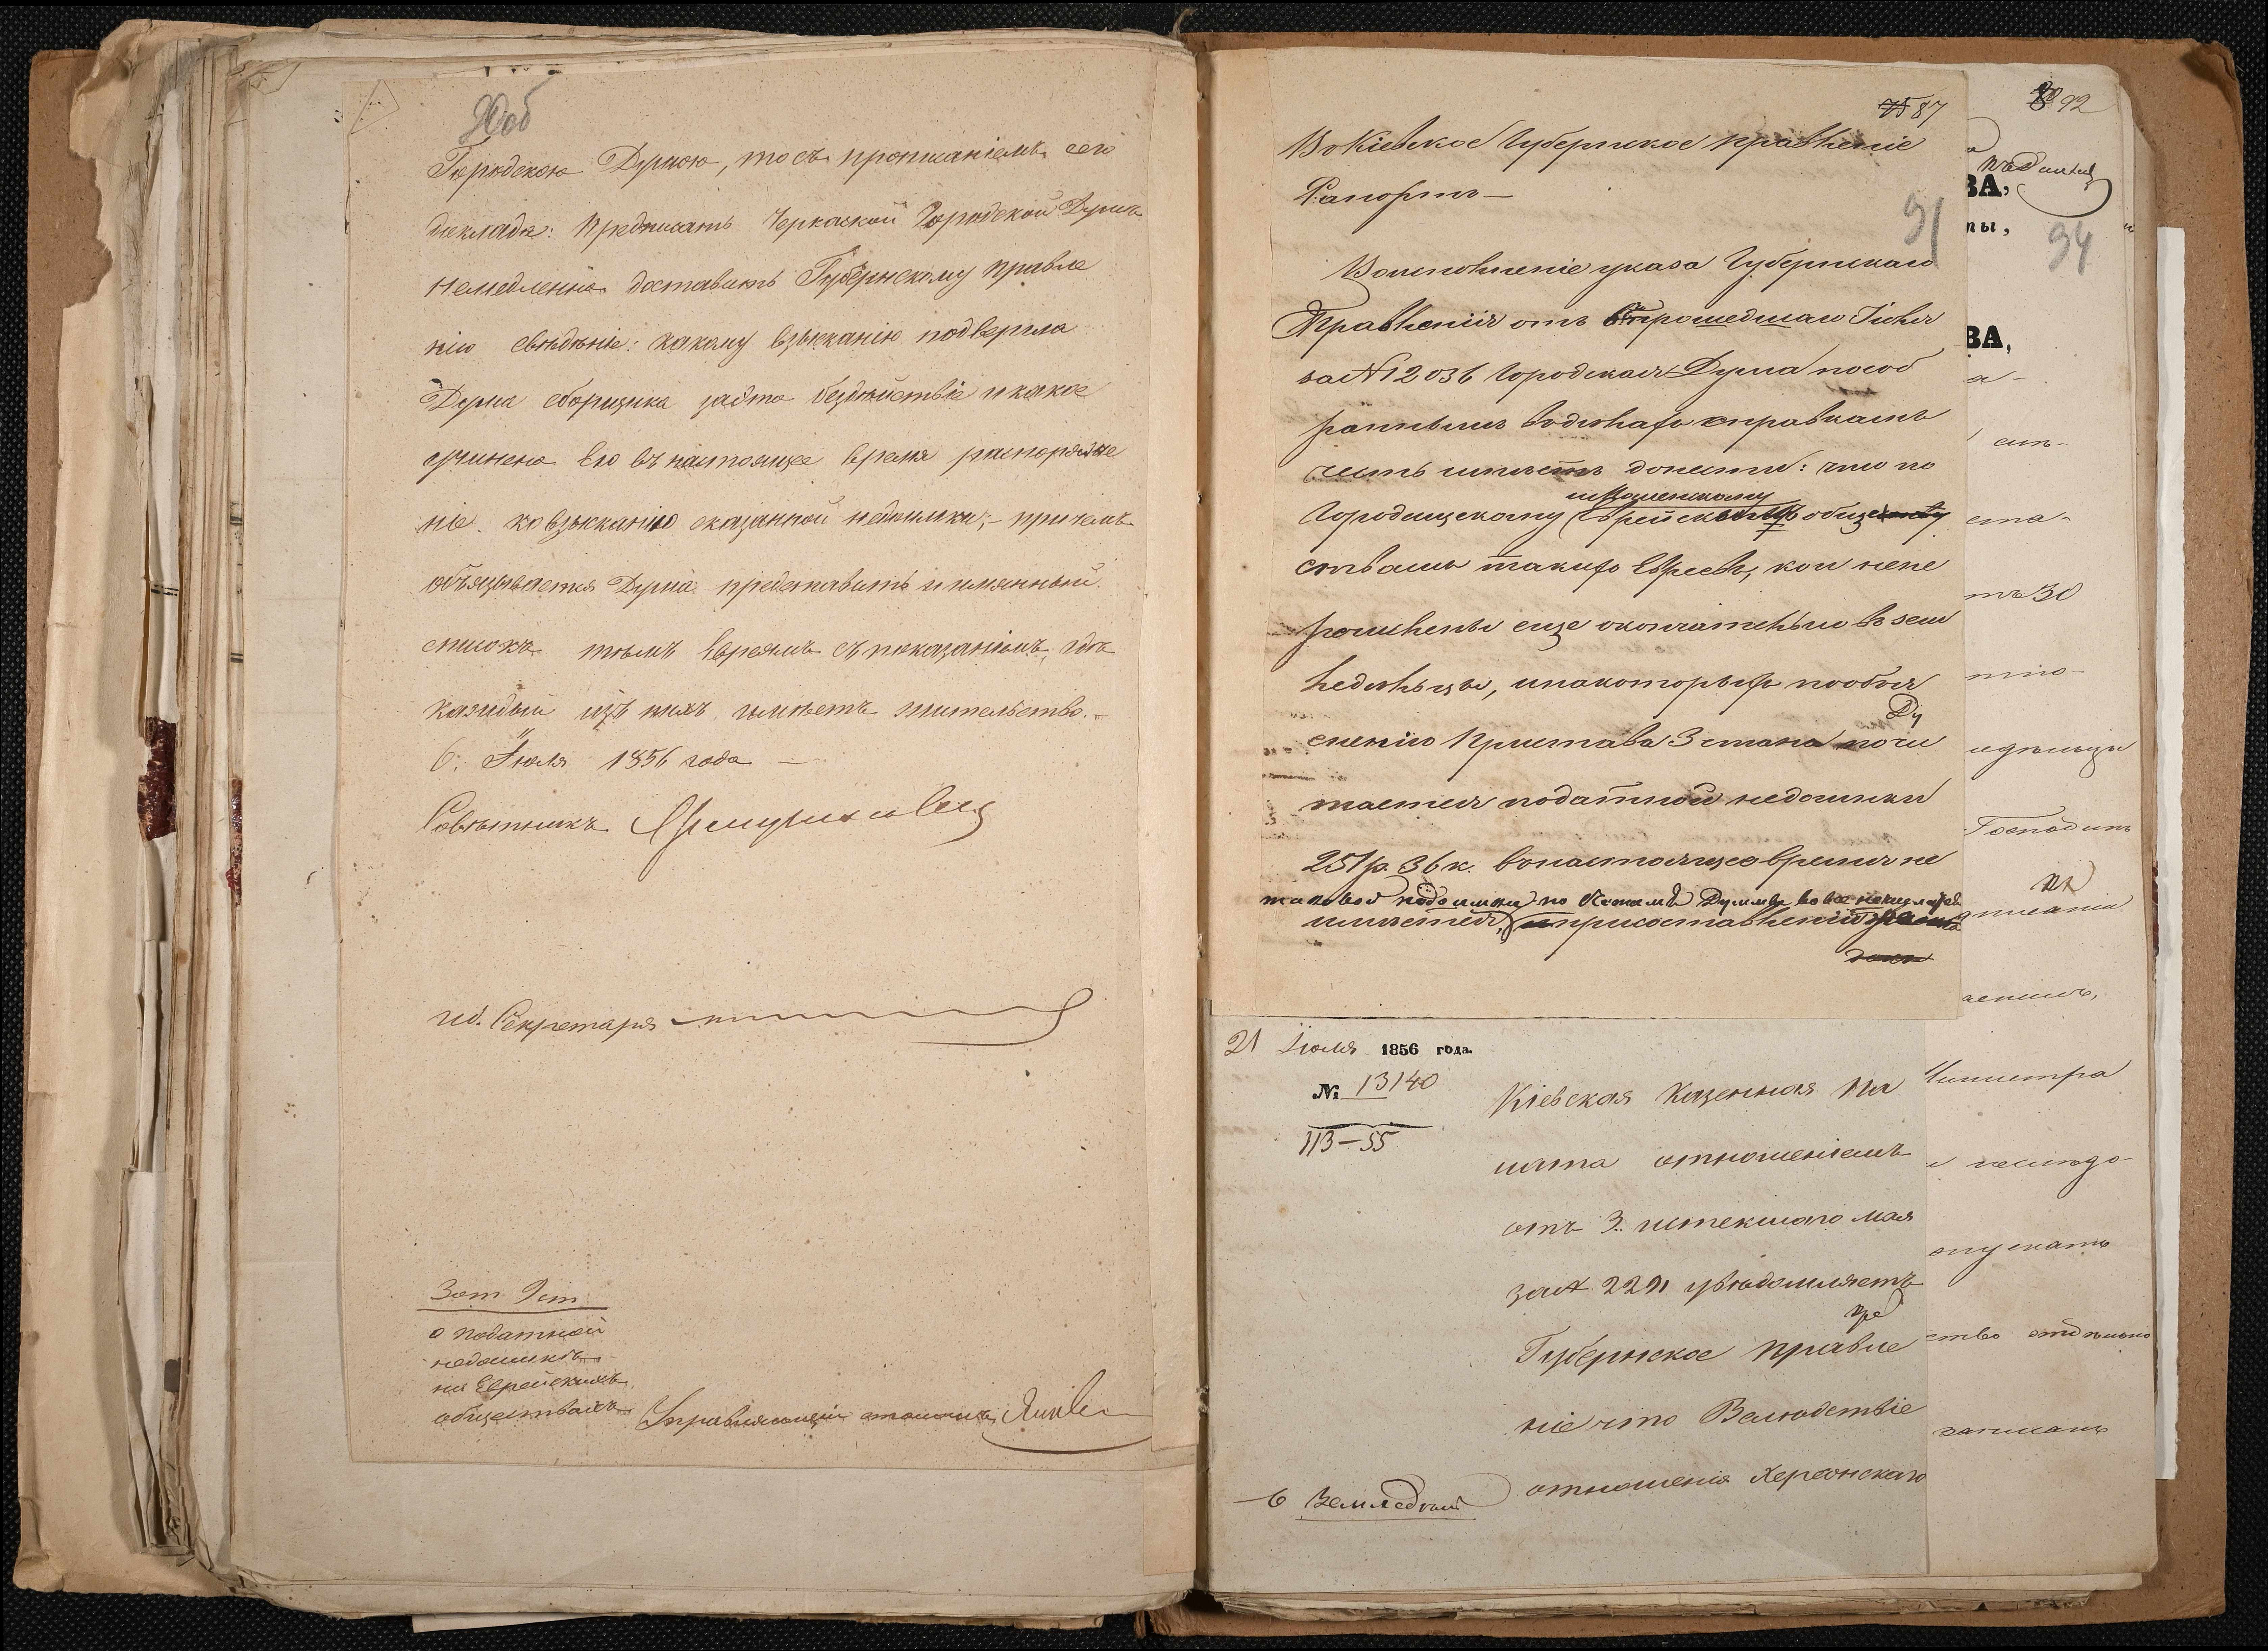 90об
Городскою Думою, то съ прописаніемъ сего
доклада: Предписать Черкаской Городской Думѣ
немедленно доставить Губернскому Правле
нію свѣдѣніе: какому взысканію подвергла
Дума сборщика за это бездѣйствіе и какое
учинено ею въ настоящее время распоряже
ніе ко взысканію сказанной недоимки; – причемъ
обязывается Дума представить и имянный
списокъ тѣмъ Евреямъ съ показаніемъ, гдѣ
каждый изъ нихъ имѣетъ жительство. –
6. Іюля 1856 года –
Совѣтникъ
Ид. Секретаря
3 от 2 ст
о податной
недоимкѣ
на Еврейскихъ
обществахъ
Управляющій столомъ
75 87
Въ Кіевское Губернское Правленіе
Рапортъ –
91
Во исполненіе указа Губернскаго
Правленія отъ прошедшаго Іюля
за № 12036 Городская Дума по соб
раннымъ въ дѣлахъ справкамъ
честь имѣетъ донести: что по
Городищескому Еврейск обще
ствамъ такихъ Евреевъ, кои непе
речислены еще окончательно въ зем
ледѣльцы, и на которыхъ по объя
Ду
сненію Пристава 3 стана почи
тается податной недоимки
251 р. 36 к. въ настоящее время не
таковой недоимки по Думы вовсе
имѣется,
92
94
ВА,
ты,
ВА,
а-
ста-
тъ 30
Господинъ
Министра
отдѣльно
21 Іюля 1856 года.
№ 13140
113–55
Кіевская Казенная Па
лата отношеніемъ
отъ 3. истекшаго мая
за № 2291 увѣдомляетъ
Губернское Правле
ніе что Вслѣдствіе
отношенія Херсонскаго
6 Земледѣл